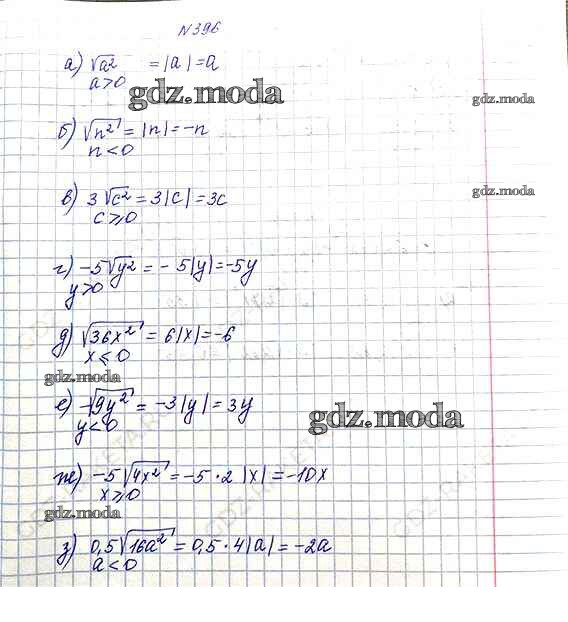 №396
а) √a² = |a| = a
a>0
gdz.moda
gdz.moda
б) √n² = |n| = -n
n<0
в) 3√c² = 3|c| = 3c
c⩾0
gdz.moda
г) -5√y² = -5|y| = -5y
y>0
д) √36x² = 6|x| = -6
x⩽0
gdz.moda
е) -√9y² = -3|y| = 3y
y<0
gdz.moda
ж) -5√4x² = -5·2|x| = -10x
x⩾0
gdz.moda
з) 0,5√16a² = 0,5·4|a| = -2a
a<0